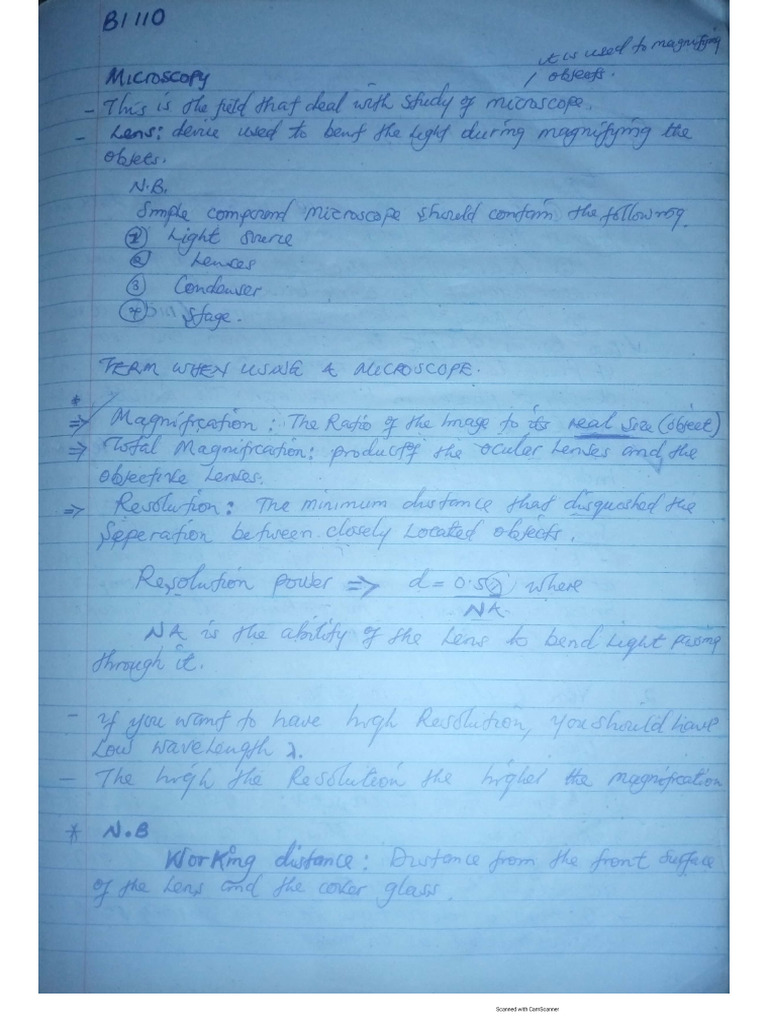 BI 110
it is used to magnifying
objects.
Microscopy
- This is the field that deal with study of microscope.
- Lens: device used to bent the light during magnifying the
objects.
N.B.
Simple compound microscope should contain the following
① Light source
② Lenses
③ Condenser
④ Stage.
TERM WHEN USING A MICROSCOPE.
*
⇒ Magnification : The Ratio of the Image to its real size (object)
⇒ Total Magnification: product of the ocular lenses and the
objective lenses.
⇒ Resolution: The minimum distance that disquashed the
Seperation between closely Located objects.
Resolution power ⇒ d = 0.5λ, where
NA.
NA is the ability of the Lens to bend light passing
through it.
- if you want to have high Resolution, you should have
Low wavelength λ.
- The high the Resolution the higher the magnification
* N.B
Working distance: Distance from the front surface
of the Lens and the cover glass.
Scanned with CamScanner